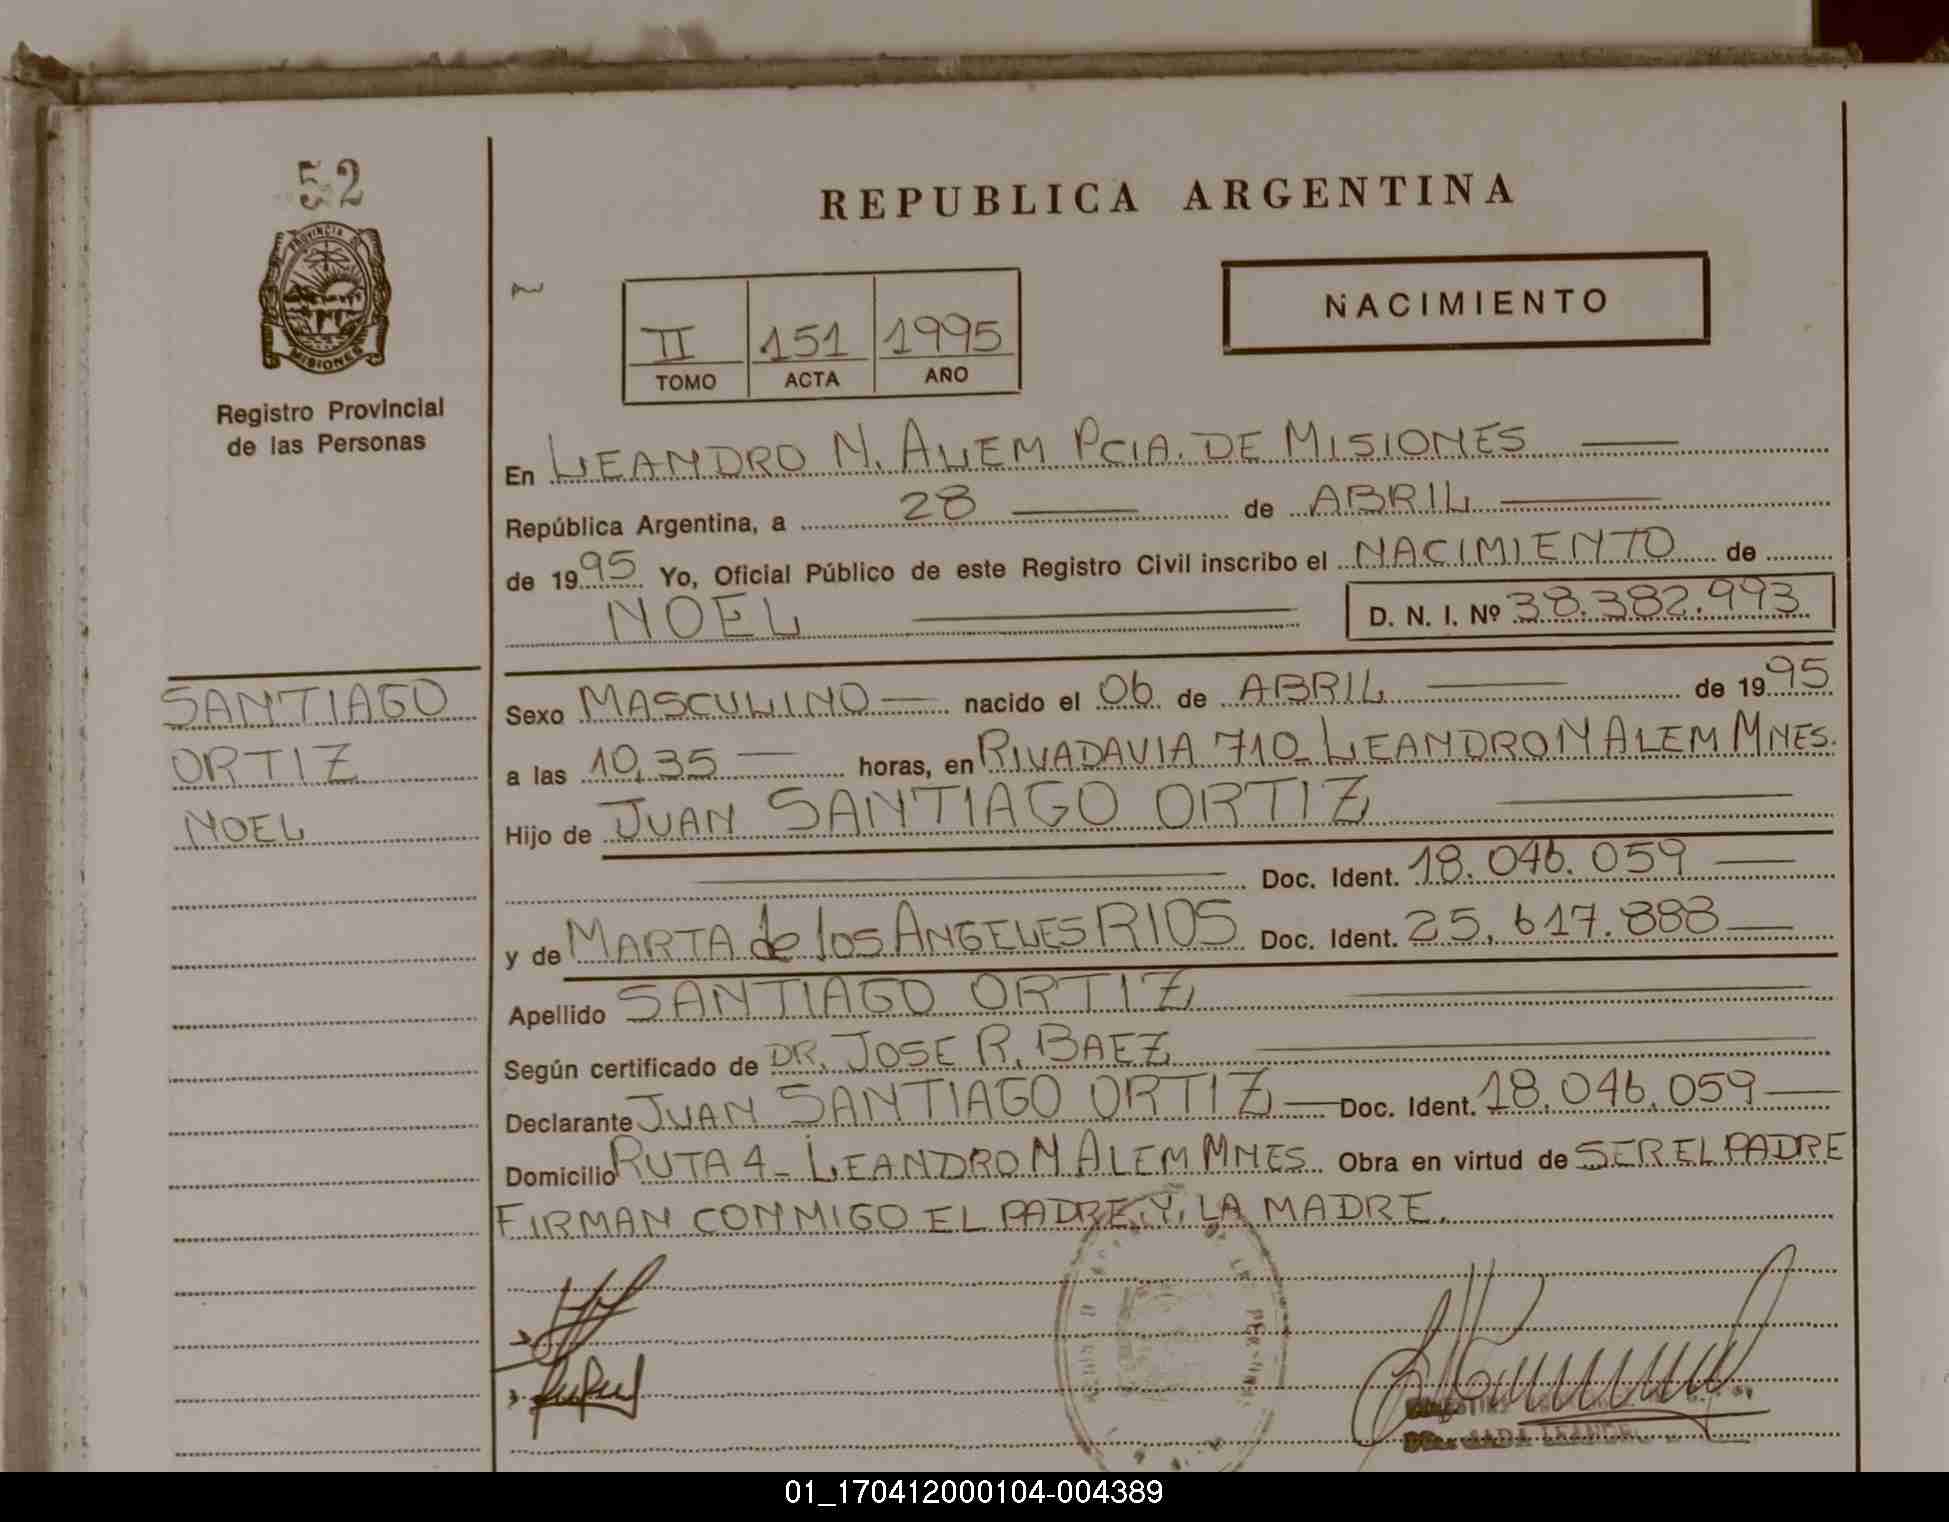 52
PROVINCIA DE
MISIONES
Registro Provincial
de las Personas
SANTIAGO
ORTIZ
NOEL
REPUBLICA ARGENTINA
II 151 1995
TOMO ACTA AÑO
NACIMIENTO
En LEANDRO N. ALEM PCIA. DE MISIONES
República Argentina, a 28 de ABRIL
de 1995 Yo, Oficial Público de este Registro Civil inscribo el NACIMIENTO de
NOEL D. N. I. Nº 38.382.993
Sexo MASCULINO nacido el 06 de ABRIL de 1995
a las 10,35 horas, en RIVADAVIA 710_ LEANDRO N ALEM MNES.
Hijo de JUAN SANTIAGO ORTIZ
Doc. Ident. 18.046.059
y de MARTA de los ANGELES RIOS Doc. Ident. 25.617.888
Apellido SANTIAGO ORTIZ
Según certificado de DR. JOSE R. BAEZ
Declarante JUAN SANTIAGO ORTIZ Doc. Ident. 18.046.059
Domicilio RUTA 4_ LEANDRO N ALEM MNES Obra en virtud de SER EL PADRE
FIRMAN CONMIGO EL PADRE Y LA MADRE.
01_170412000104-004389